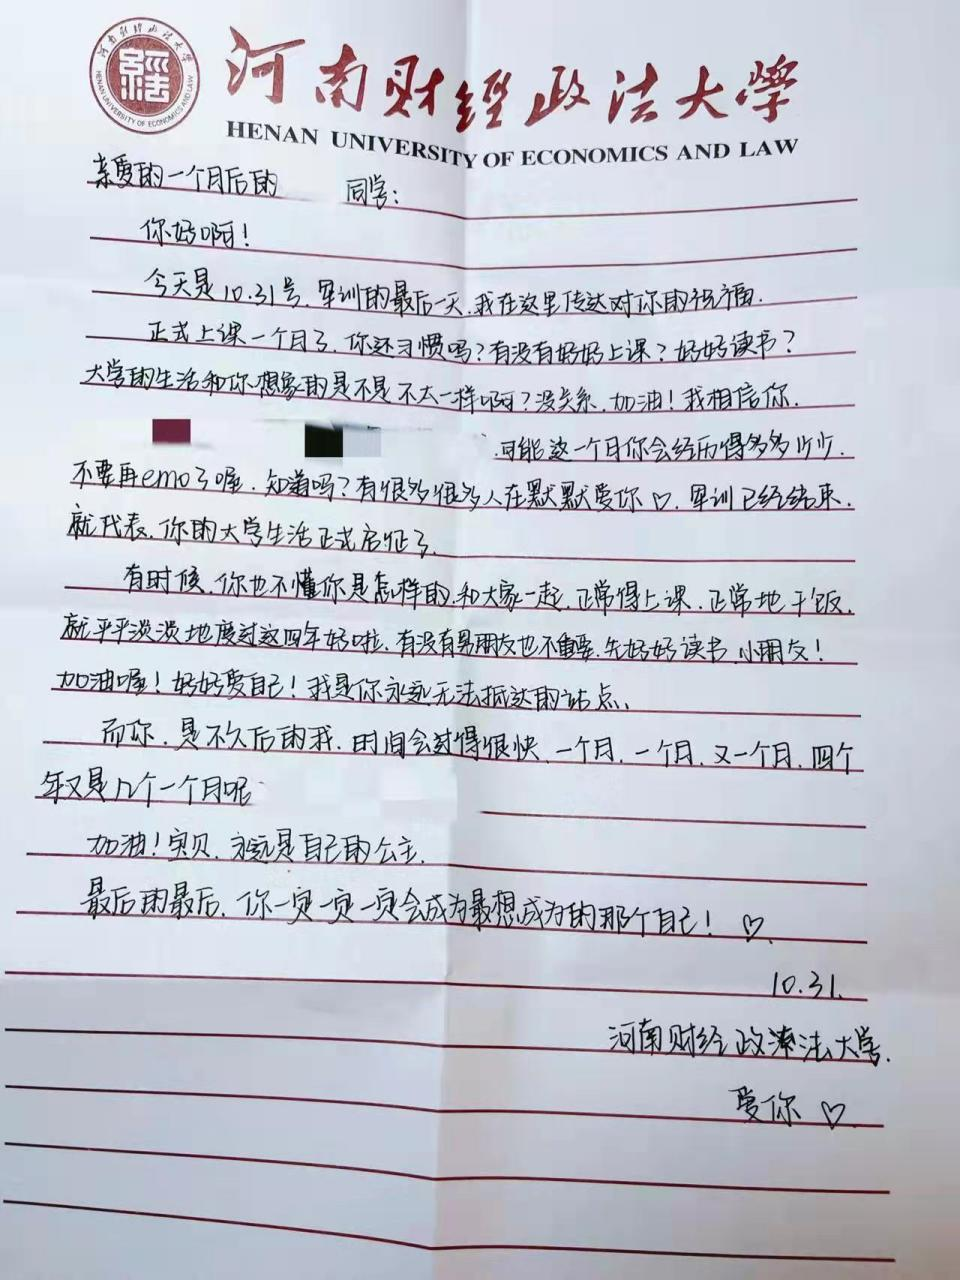 河南财经政法大学
HENAN UNIVERSITY OF ECONOMICS AND LAW
亲爱的一个月后的 同学：
你好啊！
今天是10.31号，军训的最后一天，我在这里传达对你的祝福。
正式上课一个月了，你还习惯吗？有没有好好上课？好好读书？
大学的生活和你想象的是不是不太一样啊？没关系，加油！我相信你。
，可能这一个月你会经历得多多少少，
不要再emo了喔，知道吗？有很多很多人在默默爱你♡。军训已经结束，
就代表，你的大学生活正式启征了。
有时候，你也不懂你是怎样的，和大家一起，正常得上课，正常地干饭，
就平平淡淡地度过这四年好啦，有没有男朋友也不重要，先好好读书，小朋友！
加油喔！好好爱自己！我是你永远无法抵达的站点，
而你，是不久后的我，时间会过得很快，一个月，一个月，又一个月，四个
年又是几个一个月呢
加油！宝贝，永远是自己的公主。
最后的最后，你一定一定一定会成为最想成为的那个自己！♡
10.31.
河南财经政法大学.
爱你♡.